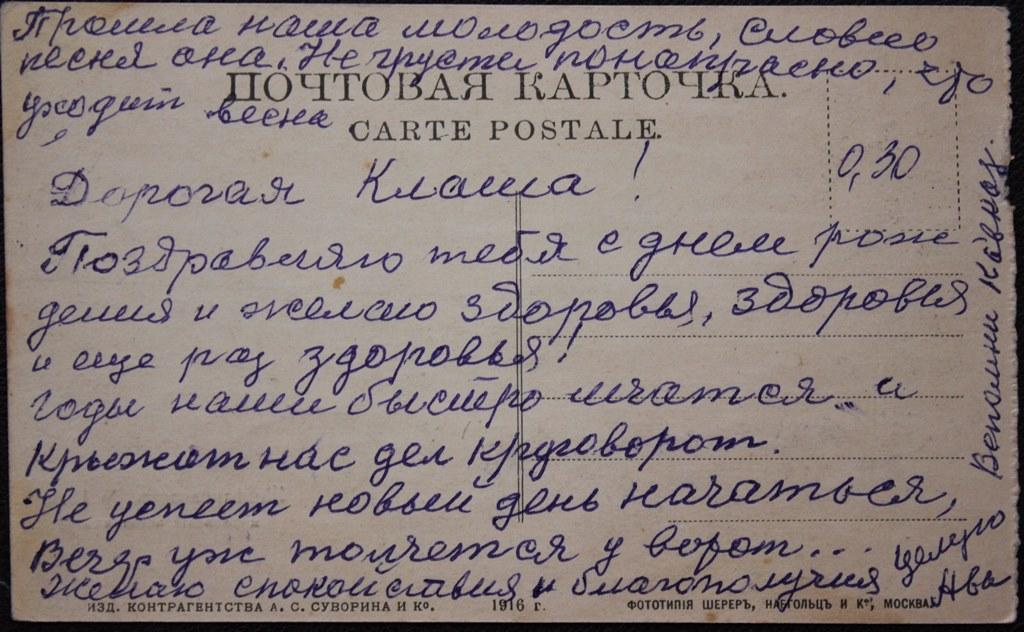 Прошла наша молодость, словно
песня она. Не грусти понапрасно, что
уходит весна
ПОЧТОВАЯ КАРТОЧКА.
CARTE POSTALE.
0,30
Дорогая Клаша!
Поздравляю тебя с днем рож
дения и желаю здоровья, здоровья
и еще раз здоровья!
Годы наши быстро мчатся и
Кружат нас дел круговорот.
Не успеет новый день начаться,
Вечер уж толчется у ворот...
Желаю спокойствия и благополучия
Целую
Ава
Вспомни Кавказ.
ИЗД. КОНТРАГЕНТСТВА А. С. СУВОРИНА И Ко.
1916 г.
ФОТОТИПІЯ ШЕРЕРЪ, НАБГОЛЬЦЪ И Ко, МОСКВА.